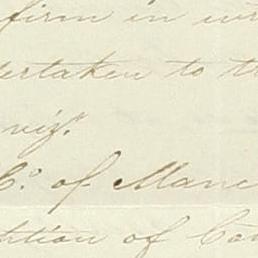 firm in wr
dertaken to t
viz.
Co. of Manc
tition of Con